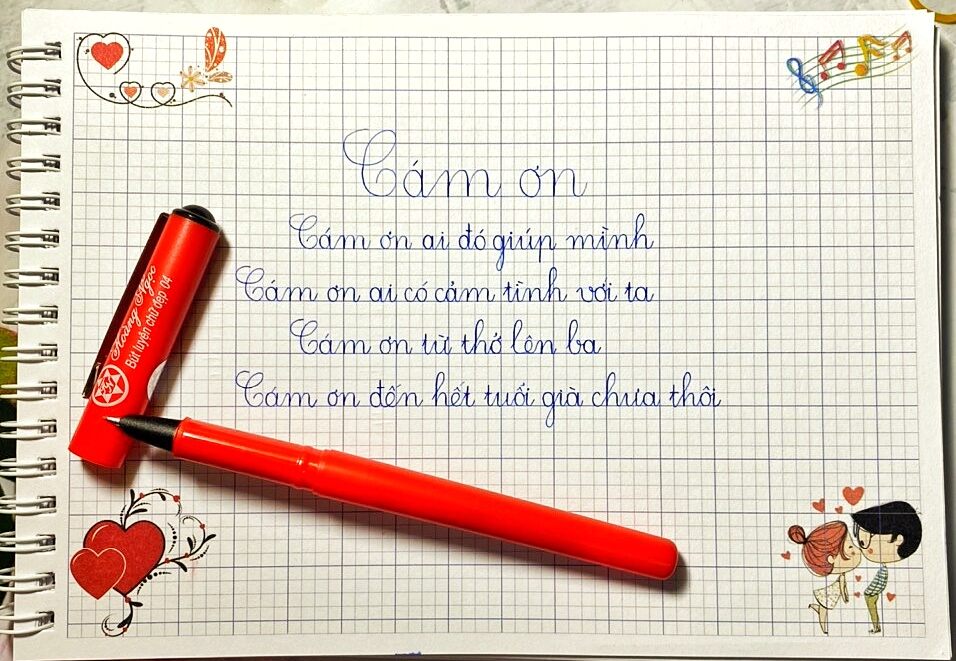 Cám ơn
Cám ơn ai đó giúp mình
Cám ơn ai có cảm tình với ta
Cám ơn từ thở lên ba
Cám ơn đến hết tuổi già chưa thôi
Hoàng Ngọc
Bút luyện chữ đẹp 04